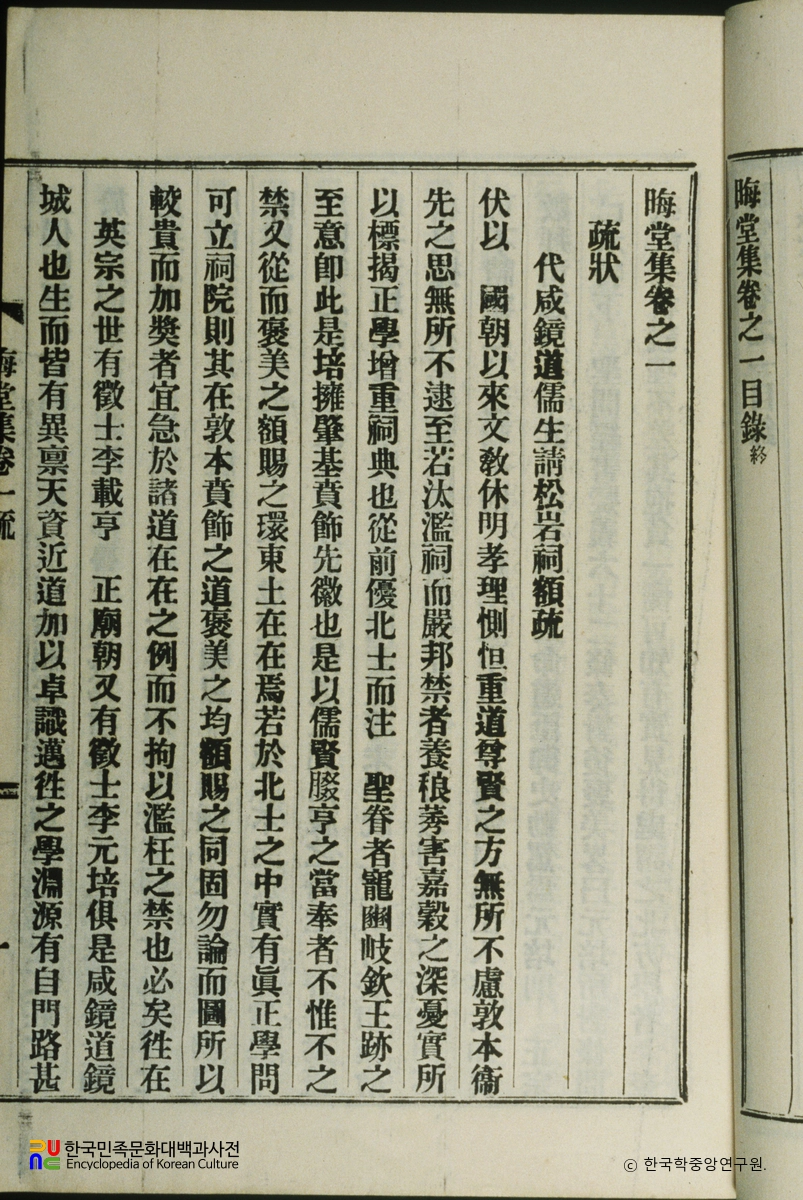 晦堂集卷之一目錄終
晦堂集卷之一
疏狀
代咸鏡道儒生請松岩祠額疏
伏以 國朝以來文敎休明孝理惻怛重道尊賢之方無所不慮敦本衞
先之思無所不逮至若汰濫祠而嚴邦禁者養稂莠害嘉穀之深憂實所
以標揭正學增重祠典也從前優北士而注 聖眷者寵豳岐欽王跡之
至意卽此是培擁肇基賁飾先徽也是以儒賢腏亨之當奉者不惟不之
禁又從而褒美之額賜之環東土在在焉若於北士之中實有眞正學問
可立祠院則其在敦本賁飾之道褒美之均額賜之同固勿論而圖所以
較貴而加奬者宜急於諸道在在之例而不拘以濫枉之禁也必矣徃在
英宗之世有徵士李載亨 正廟朝又有徵士李元培俱是咸鏡道鏡
城人也生而皆有異禀天資近道加以卓識邁徃之學淵源有自門路甚
晦堂集卷一 疏 一
한국민족문화대백과사전
Encyclopedia of Korean Culture
ⓒ 한국학중앙연구원.